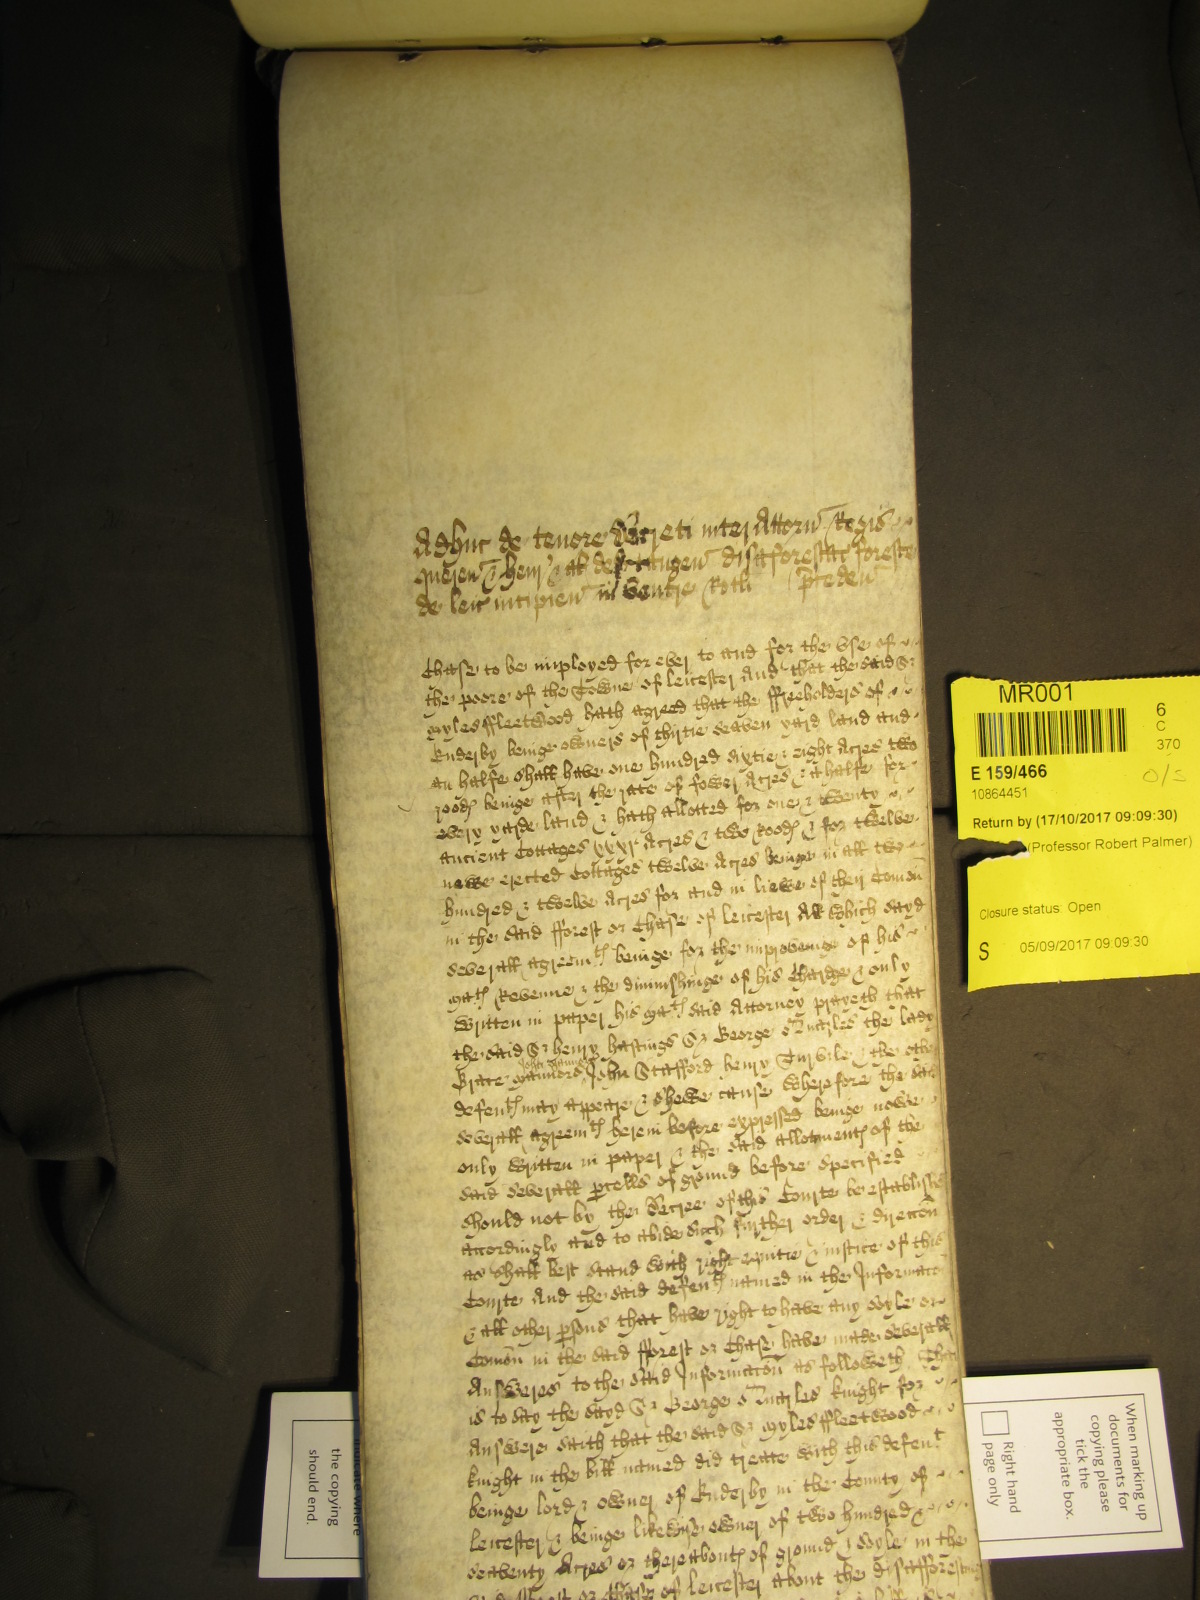 Adhuc de tenore decreti inter Attorn Regis
queren & Henr & al defend tangen disafforestac foreste
de Leic incipien in Ventre Rotli preceden
Chase to be imployed for ever to and for the vse of
the poore of the Towne of Leicester And that the said Sr
Myles ffleetwood hath agreed that the ffreeholders of
Enderby beinge owners of thirtie seaven yard land and
an halfe shall have one hundred sixtie & eight Acres two
roods beinge after the rate of fower Acres & a halfe for
every yarde land & hath allotted for one & twenty
ancient Cottages xxxi Acres & two Roods & for twelve
newe erected Cottages twelve Acres beinge in all two
hundred & twelve Acres for and in liewe of their Comon
in the said fforest or Chase of Leicester All which sayd
severall agreemts beinge for the improvinge of his
Mats Revenue & the diminishinge of his Chardge & only
written in paper his Mats said Attorney prayeth that
the said Sr Henry Hastings Sr George the lady
Grace Mannors John Stafford Henry Turvile & the other
defents may appeare & shewe cause wherefore the said
severall agreemts herein before expressed beinge nowe
only written in paper & the said allotments of the
said severall pcells of ground before specified
should not by the Decree of this Courte be established
accordingly and to abide such further order & direccon
as shall best stand with right equitie & iustice of this
Courte And the said defents named in the Informacon
& all other psons that have right to have any soyle or
Comon in the said fforest or Chase have made severall
Answeres to the said Informacon as followeth That
is to say the sayd Sr George knight for
Answere saith that the said Sr Myles ffleetwood
knight in the bill named did treate with this defent
beinge lord & owner of Enderby in the County of
Leicester & beinge likewise owner of two hundred &
seaventy Acres or thereabouts of ground & soyle in the
said fforest or Chase of Leicester about the disafforestinge
MR001
6
C
370
E 159/466
O/S
10864451
Return by (17/10/2017 09:09:30)
(Professor Robert Palmer)
Closure status: Open
S 05/09/2017 09:09:30
When marking up
documents for
copying please
tick the
appropriate box.
Right hand
page only
indicate where
the copying
should end.